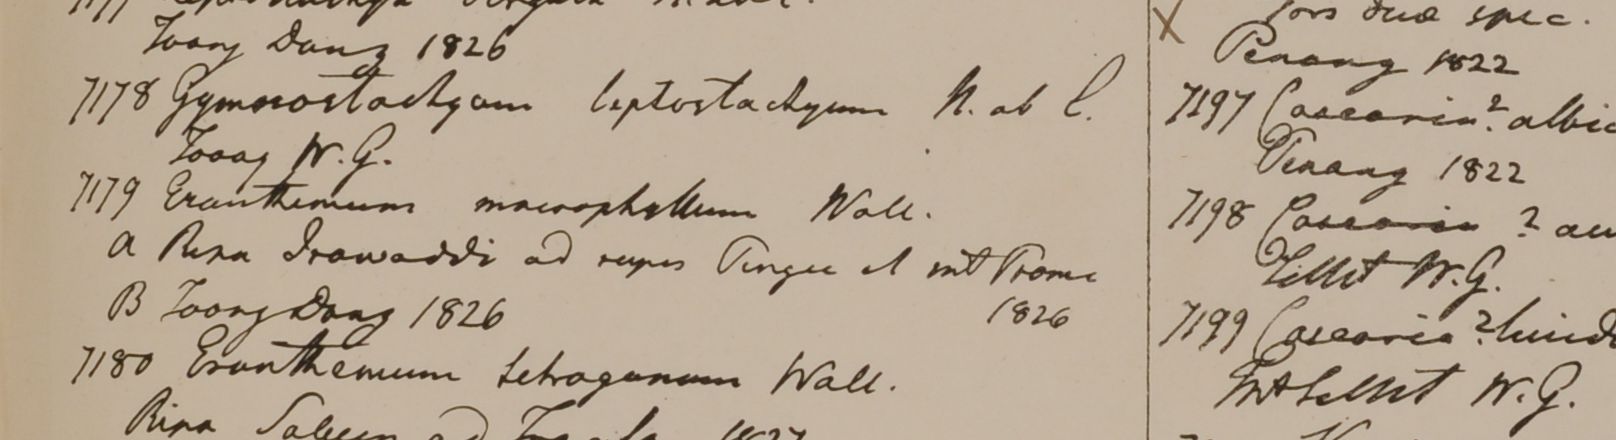 Toong Dong 1826
7178 Gymnostachyum leptostachyum N. ab E.
Toong W.G.
7179 Eranthemum macrophyllum Wall.
a Ripa Irawaddi ad rupes Pingee et mt Prome
1826
B Toong Dong 1826
7180 Eranthemum tetragonum Wall.
Ripa Saluen ad
X
fors duae spec.
Penang 1822
7197 Casearia? albic
Penang 1822
7198 Casearia ?
Sillet W.G.
7199 Casearia ?
Mt Sillet W.G.